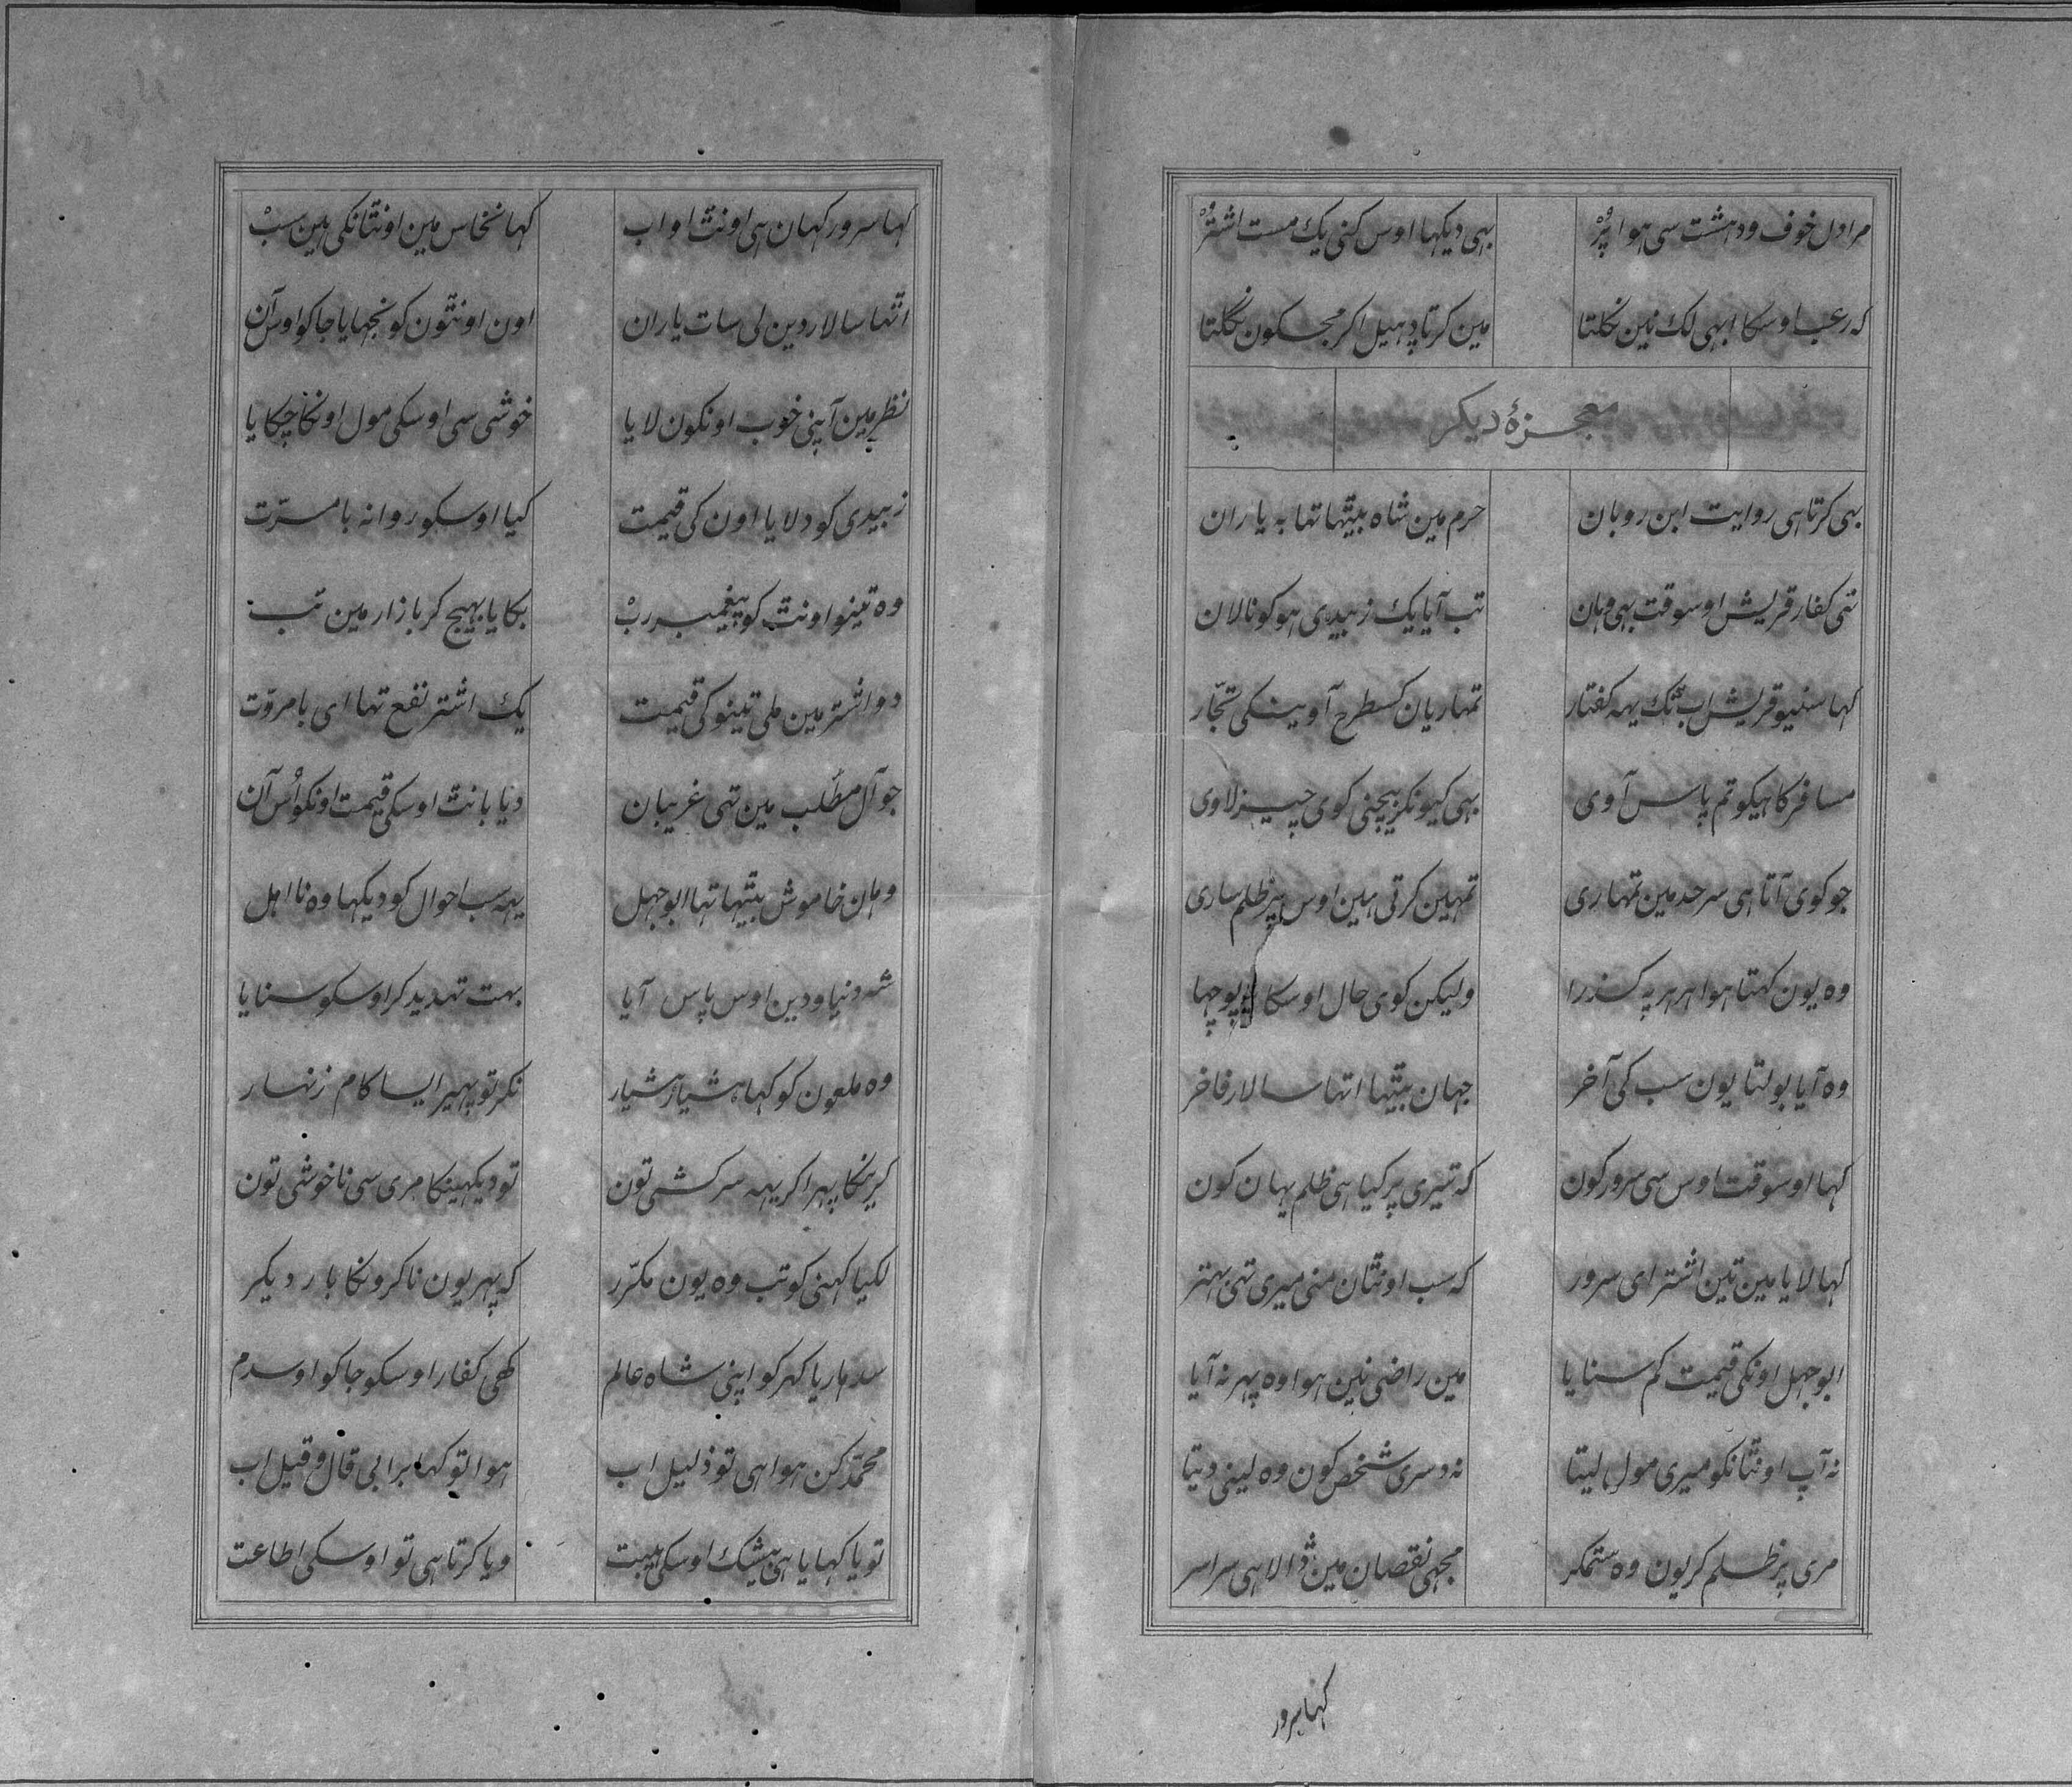 مرا دل خوف و دہشت سی ہوا پُرْ بہی دیکہا اوس کنی یك مست اشتُرْ
کہ رعب اوسکا ابہی لک نین نکلتا مین کرتا دہیل اکر مجکون نکلتا
معجزۂ دیکر
بہی کرتا ہی روایت ابن رومان حرم مین شاہ بیٹہا تہا بہ یاران
تہی کفار قریش اوسوقت بہی وہان تب آیا یك زبیدی ہو کو نالان
کہا سنیو قریش اب تک یہہ کفتار تمہاریان کسطرح آوینکی تجّار
مسافر کاہیکو تم پاس آوی بہی کیونکر بیچنی کوی چیز لاوی
جو کوی آتا ہی سرحد مین تمہاری تمہین کرتی ہین اوس پر ظلم ساری
وہ یون کہتا ہوا ہر ہر پہ کذرا ولیکن کوی حال اوسکا پوچہا
وہ آیا بولتا یون سب کی آخر جہان بیٹہا اتہا سالار فاخر
کہا اوسوقت اوس سی سرور کون کہ تیری پر کیا ہی ظلم یہان کون
کہا لایا مین تین اشتر ای سرور کہ سب اونٹان منی میری تہی بہتر
ابوجہل اونکی قیمت کم سنایا مین راضی نین ہوا وہ پہر نہ آیا
نہ آپ اونٹانکو میری مول لیتا نہ دسری شخص کون وہ لینی دیتا
مری پر ظلم کر یون وہ ستمکر مجہی نقصان مین ڈالا ہی سراسر
کہا سرور
کہا سرور کہان ہی اونٹ او اب کہا نخاس مین اونٹانکی ہین سبْ
اٹہا سالار دین لی سات یاران اون اونٹون کو نجہایا جا کو اوس آن
نظر مین آپنی خوب اونکون لایا خوشی سی اوسکی مول اونکا چکایا
زبیدی کو دلایا اون کی قیمت کیا اوسکو روانہ با مسرّت
وہ تینو اونٹ کو پیغمبر ربْ بکایا بہیج کر بازار مین تب
دو اشتر مین ملی تینو کی قیمت یك اشتر نفع تہا ای با مروّت
جو آل مطّلب مین تہی غریبان دیا بانٹ اوسکی قیمت اونکو اُس آن
وہان خاموش بیٹہا تہا ابوجہل یہہ سب احوال کو دیکہا وہ نا اہل
شہ دنیا و دین اوس پاس آیا بہت تہدید کر اوسکو سنایا
وہ ملعون کو کہا ہشیار ہشیار نکر تو پہیر ایسا کام زنہار
کرینکا پہر اکر یہہ سرکشی تون تو دیکہینکا مری سی ناخوشی تون
لکیا کہنی کو تب وہ یون مکرّر کہ پہر یون نا کرونکا بار دیکر
سدہاریا کہر کو اپنی شاہ عالم کہی کفار اوسکو جا کو اوسدم
محمّد کن ہوا ہی تو ذلیل اب ہوا تو کہا برا بی قال و قیل اب
تو یا کہایا ہی بیشك اوسکی ہیبت و یا کرتا ہی تو اوسکی اطاعت